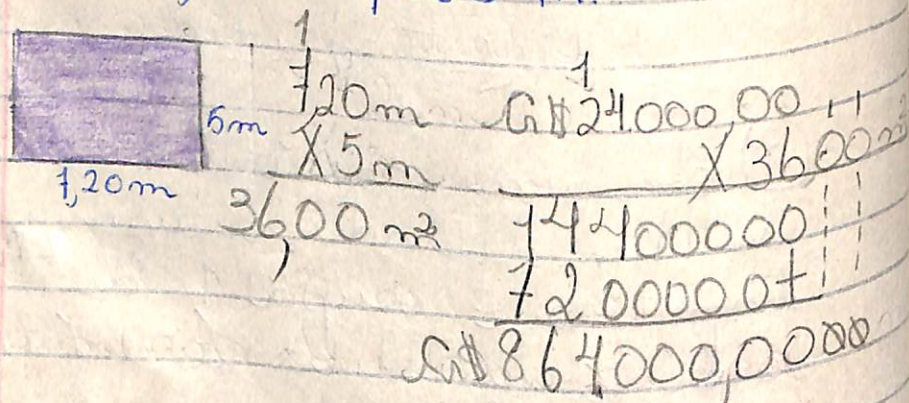 5m
7,20m
1
7,20m
X 5m
36,00 m²
1
Cr$ 24.000,00
X 36,00 m²
14400000
7200000+
Cr$ 864000,0000